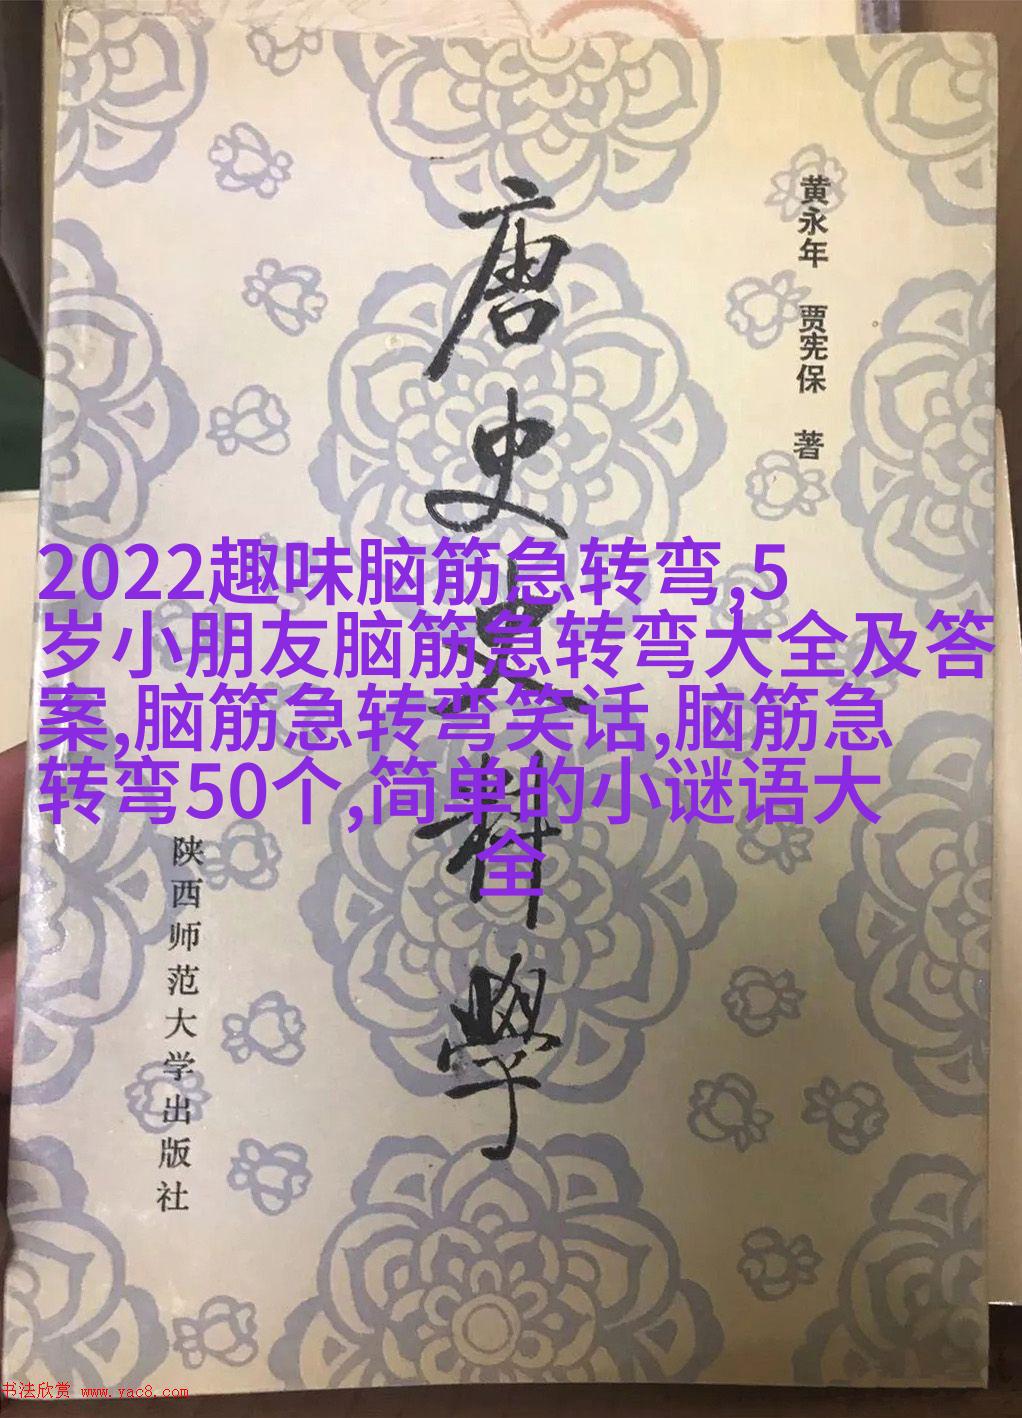 黄永年 贾宪保 著
唐史史料学
2022趣味脑筋急转弯,5
岁小朋友脑筋急转弯大全及答
案,脑筋急转弯笑话,脑筋急
转弯50个,简单的小谜语大
全
陕西师范大学出版社
书法欣赏 www.yac8.com